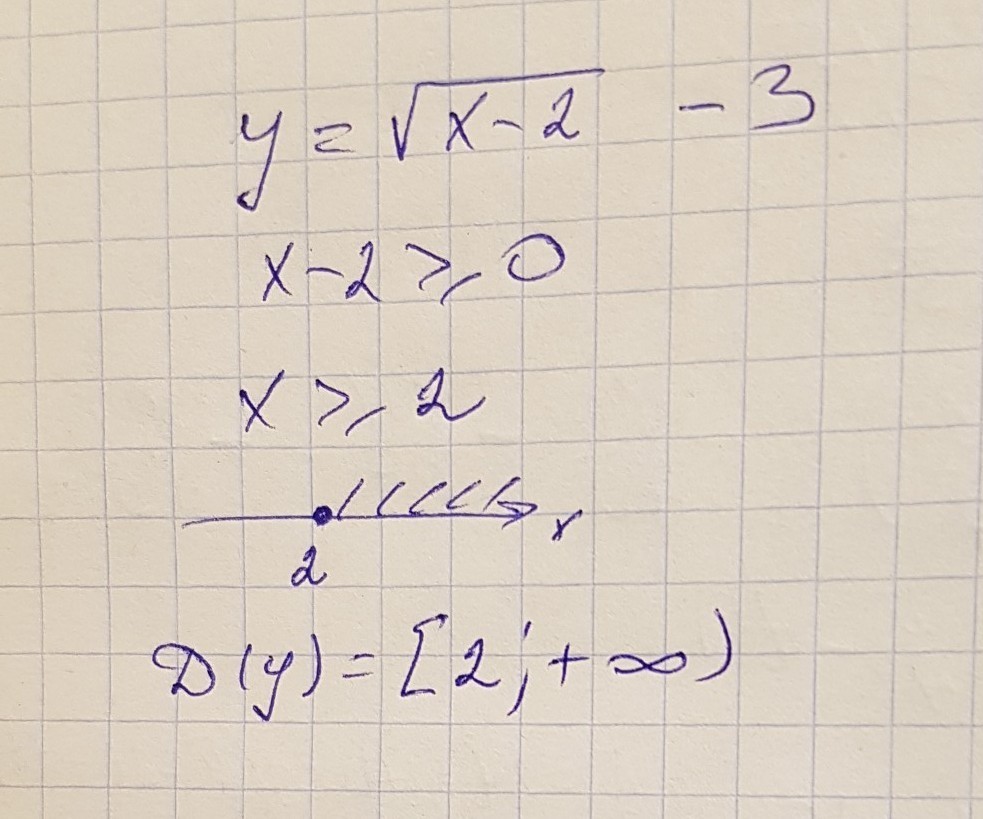 y = √x-2 - 3
x-2 ⩾ 0
x ⩾ 2
x
2
D(y) = [2; + ∞)